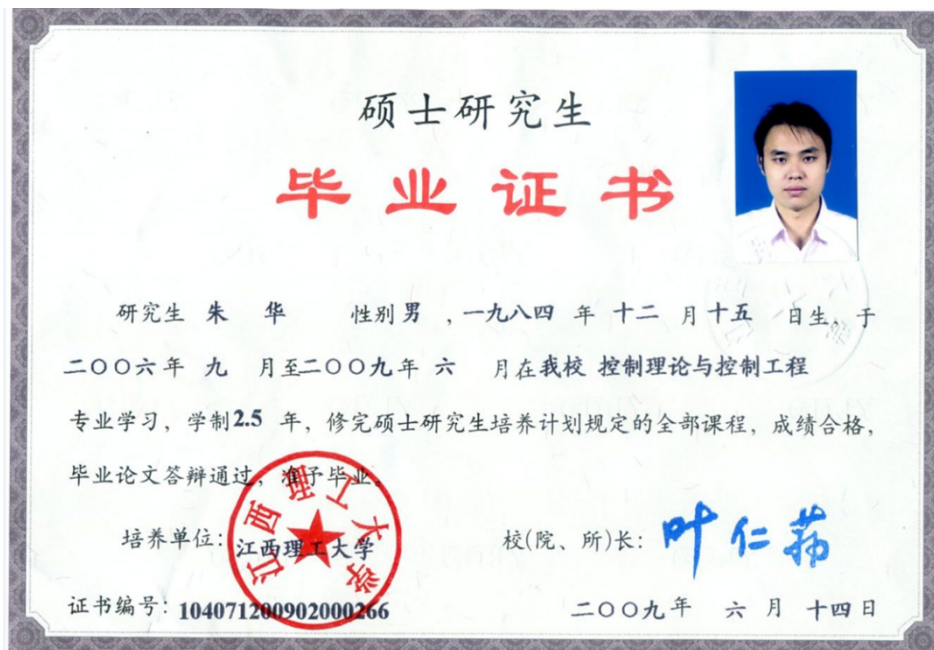 硕士研究生
毕业证书
研究生 朱 华 性别 男 ,一九八四 年 十二 月 十五 日生,于
二〇〇六年 九 月至二〇〇九年 六 月在我校 控制理论与控制工程
专业学习,学制2.5 年,修完硕士研究生培养计划规定的全部课程,成绩合格,
毕业论文答辩通过,准予毕业。
江西理工大学
培养单位:江西理工大学 校(院、所)长:叶仁荪
证书编号:104071200902000266 二〇〇九年 六 月 十四日